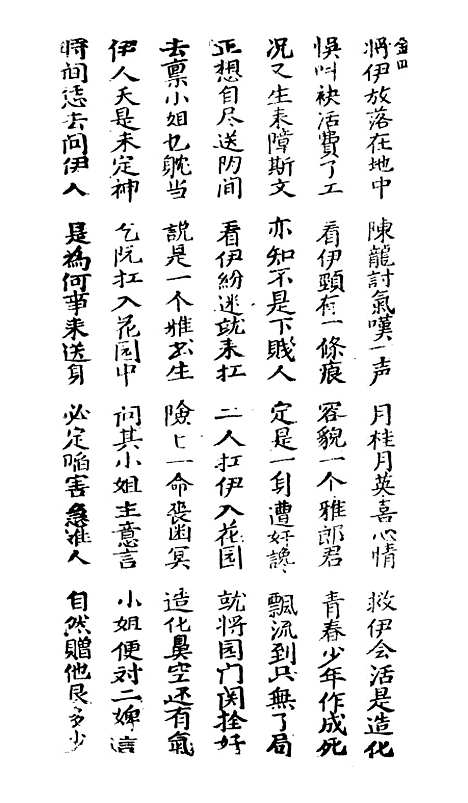 金四
將伊放落在地中 陳龍討氣嘆一声 月桂月英喜心情 救伊会活是造化
悞叫袂活費了工 看伊頸有一條痕 容貌一个雅郎君 青春少年作成死
况又生来障斯文 亦知不是下賤人 定是一身遭奸讒 飄流到只無了局
正想自尽送阴间 看伊紛迷就来扛 二人扛伊入花园 就将园门関拴好
去禀小姐乜躭当 説是一个雅书生 險々一命喪幽冥 造化鼻空还有氣
伊人夭是未定神 乞阮扛入花园中 问其小姐主意言 小姐便对二婢言
時间恁去问伊人 是為何事来送身 必定陷害急难人 自然贈他艮多少